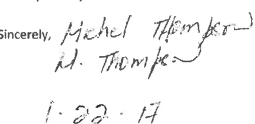 Sincerely, Michel Thompson
M. Thompson
1 · 22 · 17